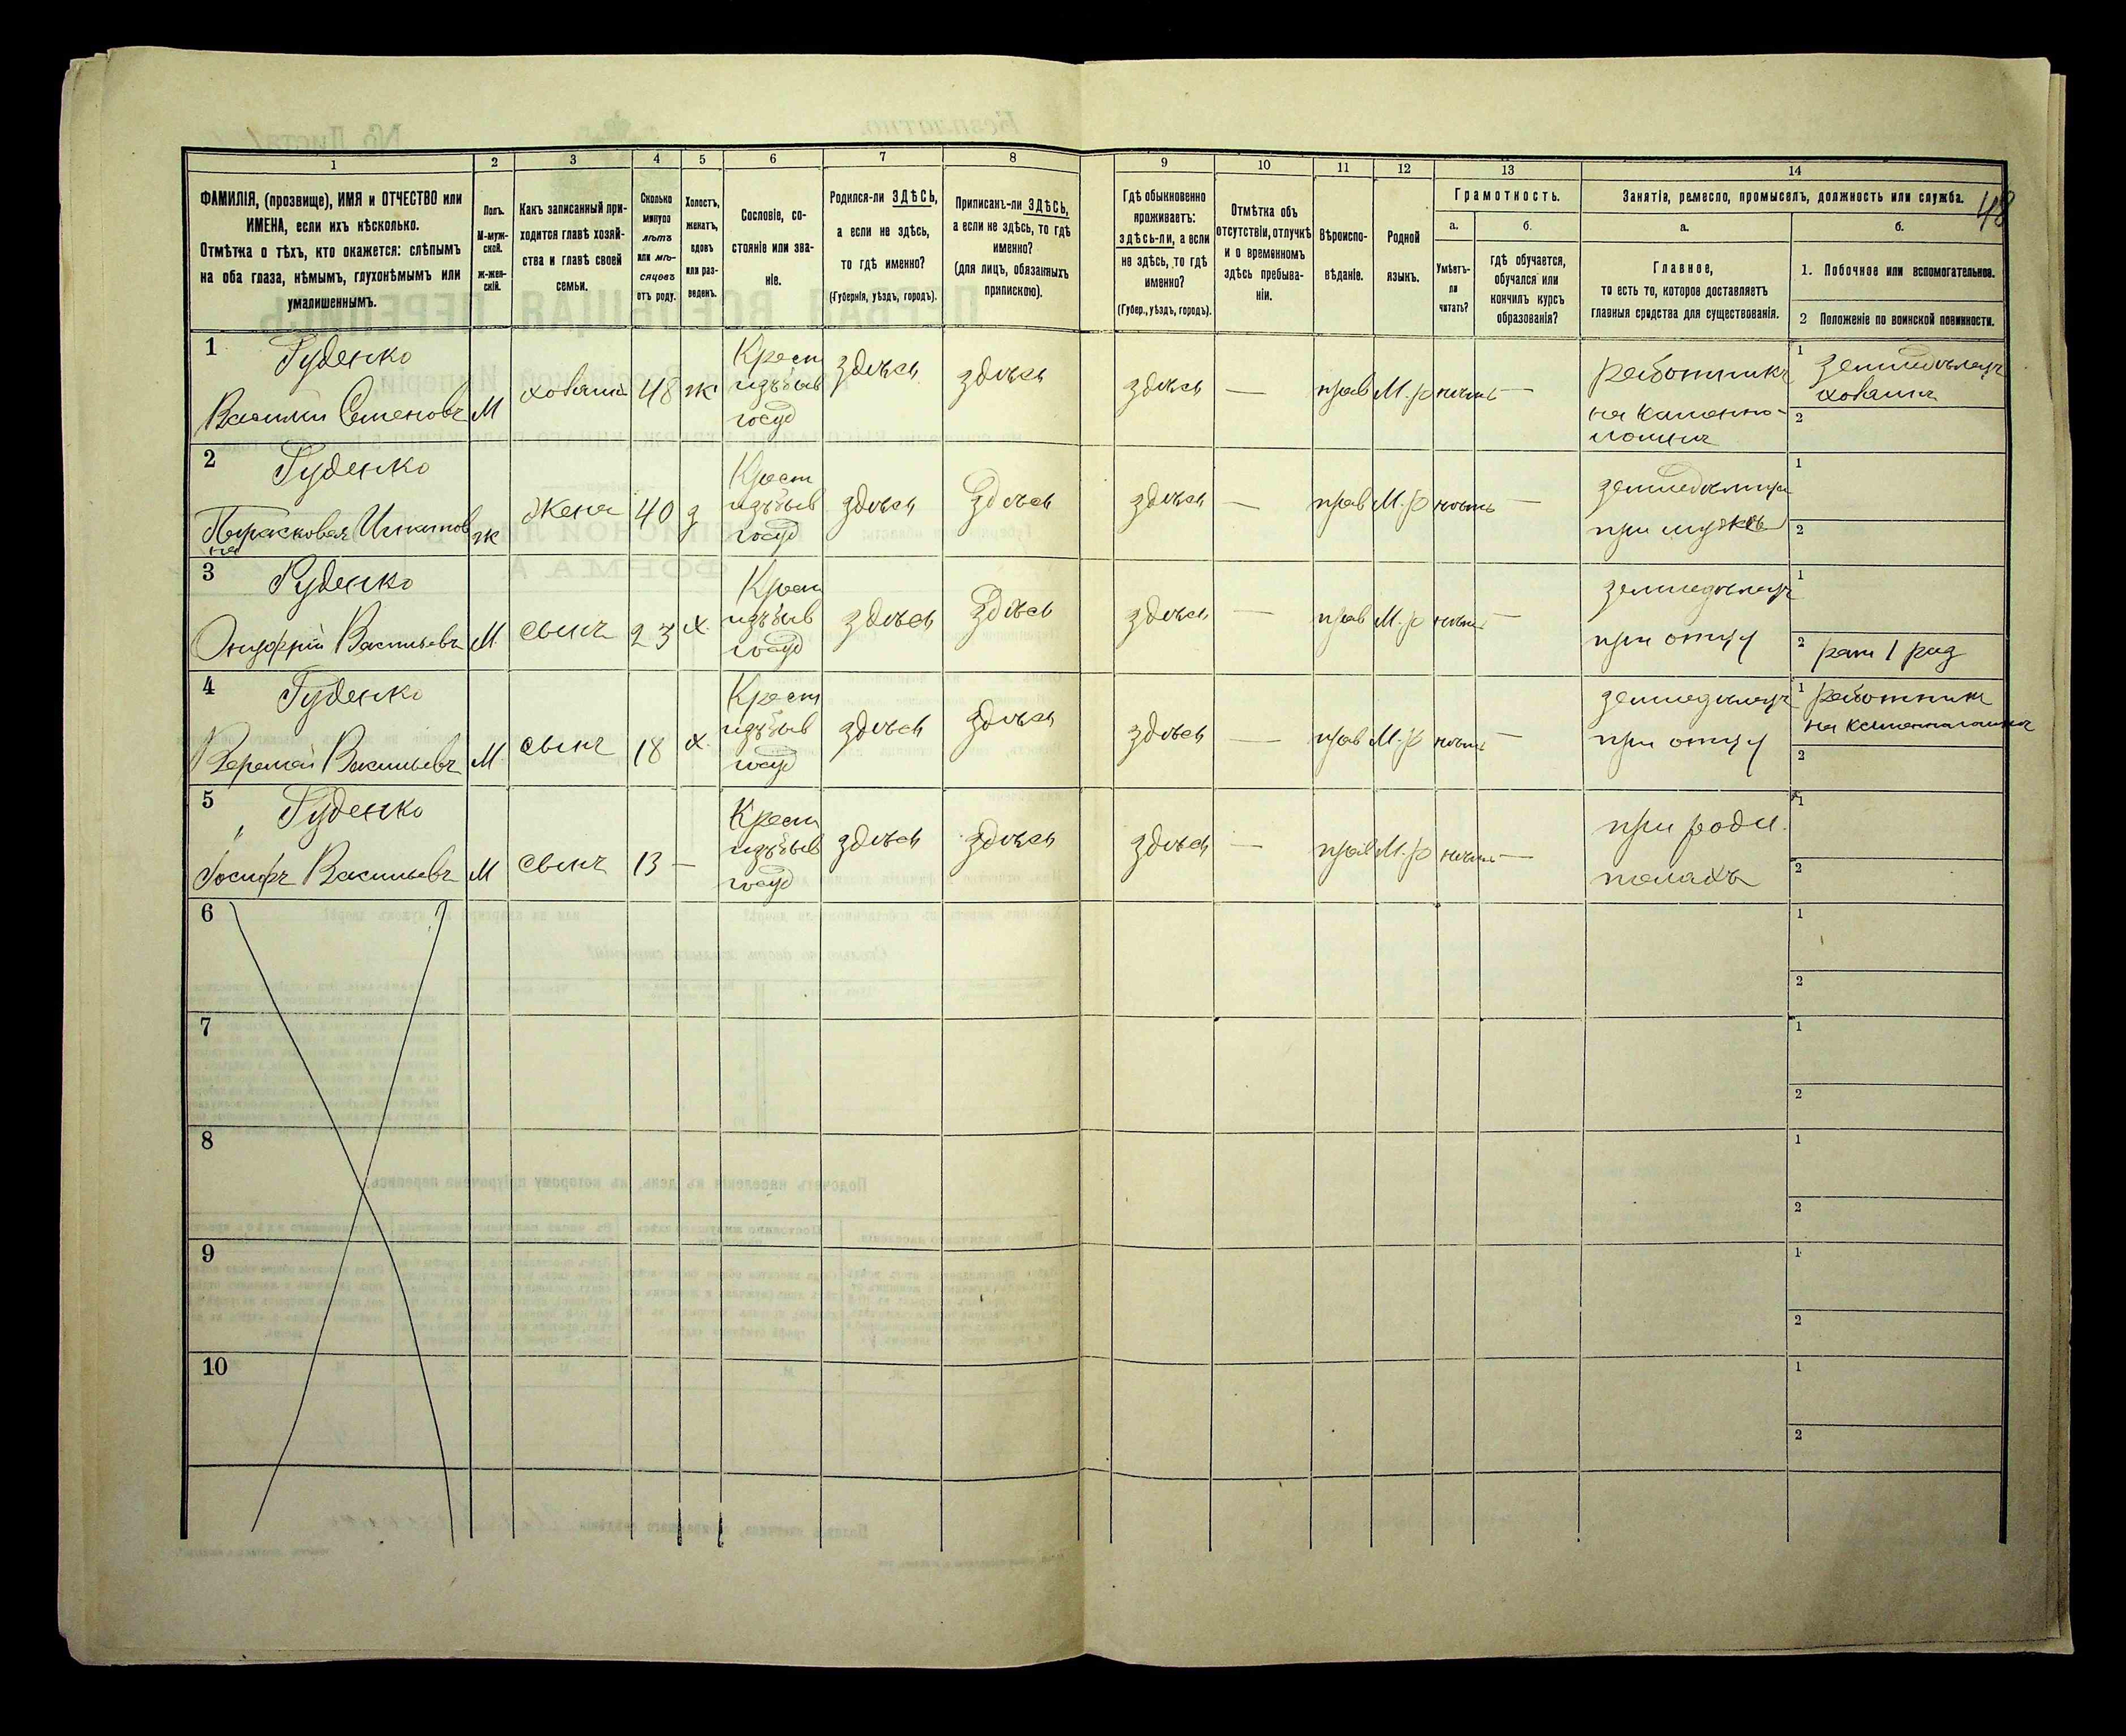 1 2 3 4 5 6 7 8 9 10 11 12 13 14
ФАМИЛІЯ, (прозвище), ИМЯ и ОТЧЕСТВО или
ИМЕНА, если ихъ нѣсколько.
Отмѣтка о тѣхъ, кто окажется: слѣпымъ
на оба глаза, нѣмымъ, глухонѣмымъ или
умалишеннымъ.
Полъ.
М-муж-
ской.
Ж-жен-
скій.
Какъ записанный при-
ходится главѣ хозяй-
ства и главѣ своей
семьи.
Сколько
минуло
лѣтъ
или мѣ-
сяцевъ
отъ роду.
Холостъ,
женатъ,
вдовъ
или раз-
веденъ.
Сословіе, со-
стояніе или зва-
ніе.
Родился-ли ЗДѢСЬ,
а если не здѣсь,
то гдѣ именно?
(Губернія, уѣздъ, городъ).
Приписанъ-ли ЗДѢСЬ,
а если не здѣсь, то гдѣ
именно?
(для лицъ, обязанныхъ
припискою).
Гдѣ обыкновенно
проживаетъ:
здѣсь-ли, а если
не здѣсь, то гдѣ
именно?
(Губер., уѣздъ, городъ).
Отмѣтка объ
отсутствіи, отлучкѣ
и о временномъ
здѣсь пребыва-
ніи.
Вѣроиспо-
вѣданіе.
Родной
языкъ.
Грамотность.
а. б.
Умѣетъ-
ли
читать?
гдѣ обучается,
обучался или
кончилъ курсъ
образованія?
Занятія, ремесло, промыселъ, должность или служба. 48
а. б.
Главное,
то есть то, которое доставляетъ
главныя средства для существованія.
1. Побочное или вспомогательное.
2 Положеніе по воинской повинности.
1 Руденко
Василий Семеновъ М хозяинъ 48 ж Крест изъ быв госуд здѣсь здѣсь здѣсь — прав М.р нѣтъ —
работникъ
на каменно-
ломнѣ
1 земледѣлецъ
хозяинъ
2
2 Руденко
Парасковья Игнатов
на
ж Жена 40 з Крест изъ быв госуд здѣсь Здѣсь здѣсь — прав М.р нѣтъ —
при мужѣ
1
2
3 Руденко
Онуфрій Васильевъ М сынъ 23 х. Крест изъ быв госуд здѣсь Здѣсь здѣсь — прав М.р нѣтъ —
земледѣлецъ
при отцу
1
2 рат 1 раз
4 Руденко
Васильевъ М сынъ 18 х. Крест изъ быв госуд здѣсь здѣсь здѣсь — прав М.р нѣтъ —
земледѣлецъ
при отцу
1 работник
на каменоломнѣ
2
5 Руденко
Іосифъ Васильевъ М сынъ 13 — Крест изъ быв госуд здѣсь здѣсь здѣсь — прав М.р нѣтъ —
при роди
теляхъ
1
2
6
1
2
7
1
2
8
1
2
9
1
2
10
1
2